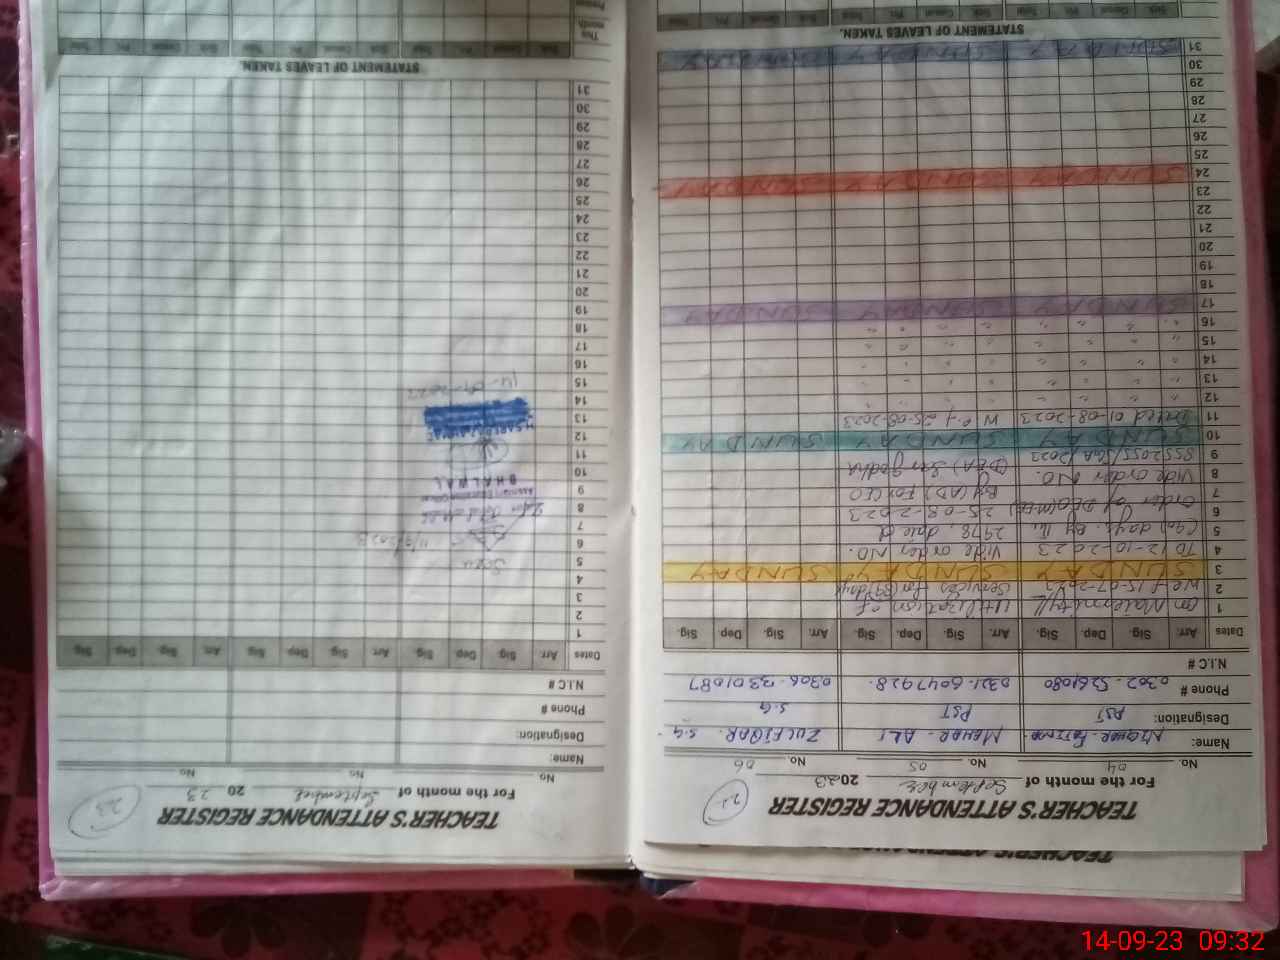 TEACHER'S ATTENDANCE REGISTER
22
For the month of September 2023
No. 04 No. 05 No. 06
Name: Mehar. ALI ZULFIQAR. S.G
Designation: PST PST S.G
Phone # 0302-5261080 0321-6047928. 0306-3301087
N.I.C #
Dates Arr. Sig. Dep. Sig. Arr. Sig. Dep. Sig. Arr. Sig. Dep Sig.
1 on Maternity/L Utilization of
2 W.e.f 15-07-2023 Services for (89)days
3 SUNDAY SUNDAY SUNDAY
4 TO 12-10-2023 Vide order NO.
5 (90) days. By the 2978, dated
6 order of DEO(M-EE) 25-08-2023
7 By (AD) For CEO
8 Vide order NO. (DEA) Sargodha
9 SSS2055/SGA/2023
10 SUNDAY SUNDAY SUNDAY
11 Dated 01-08-2023 W.e.f 25-08-2023
12 " " " " " " " "
13 " " " " " " " "
14 " " " " " " " "
15 " " " " " " " "
16 " " " " " " " "
17 SUNDAY SUNDAY SUNDAY
18
19
20
21
22
23
24 SUNDAY SUNDAY SUNDAY
25
26
27
28
29
30
31 SUNDAY SUNDAY SUNDAY
STATEMENT OF LEAVES TAKEN.
Sick Casual Pri. Total Sick Casual Pri. Total Sick Casual Pri. Total
TEACHER'S ATTENDANCE REGISTER
23
For the month of September 2023
No. No. No.
Name:
Designation:
Phone #
N.I.C #
Dates Arr. Sig. Dep. Sig Arr. Sig. Dep. Sig Arr. Sig. Dep. Sig
1
2
3
4
5
6
7
8
9
10
11
12
13
14
15
16
17
18
19
20
21
22
23
24
25
26
27
28
29
30
31
Seen
11/9/2023
Assistant Education Officer
BHALWAL
14-09-2023
STATEMENT OF LEAVES TAKEN.
Sick Casual Pri. Total Sick Casual Pri. Total Sick Casual Pri. Total
This month
TEACHER'S ATTENDANCE REGISTER
14-09-23 09:32